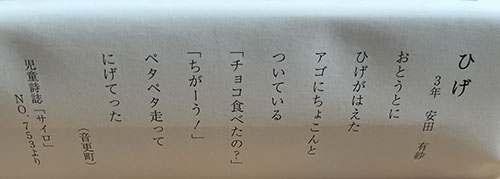 ひげ
3年 安田 有紗
おとうとに
ひげがはえた
アゴにちょこんと
ついている
「チョコ食べたの?」
「ちがーう!」
ペタペタ走って
にげてった
(音更町)
児童詩誌「サイロ」
NO.753より